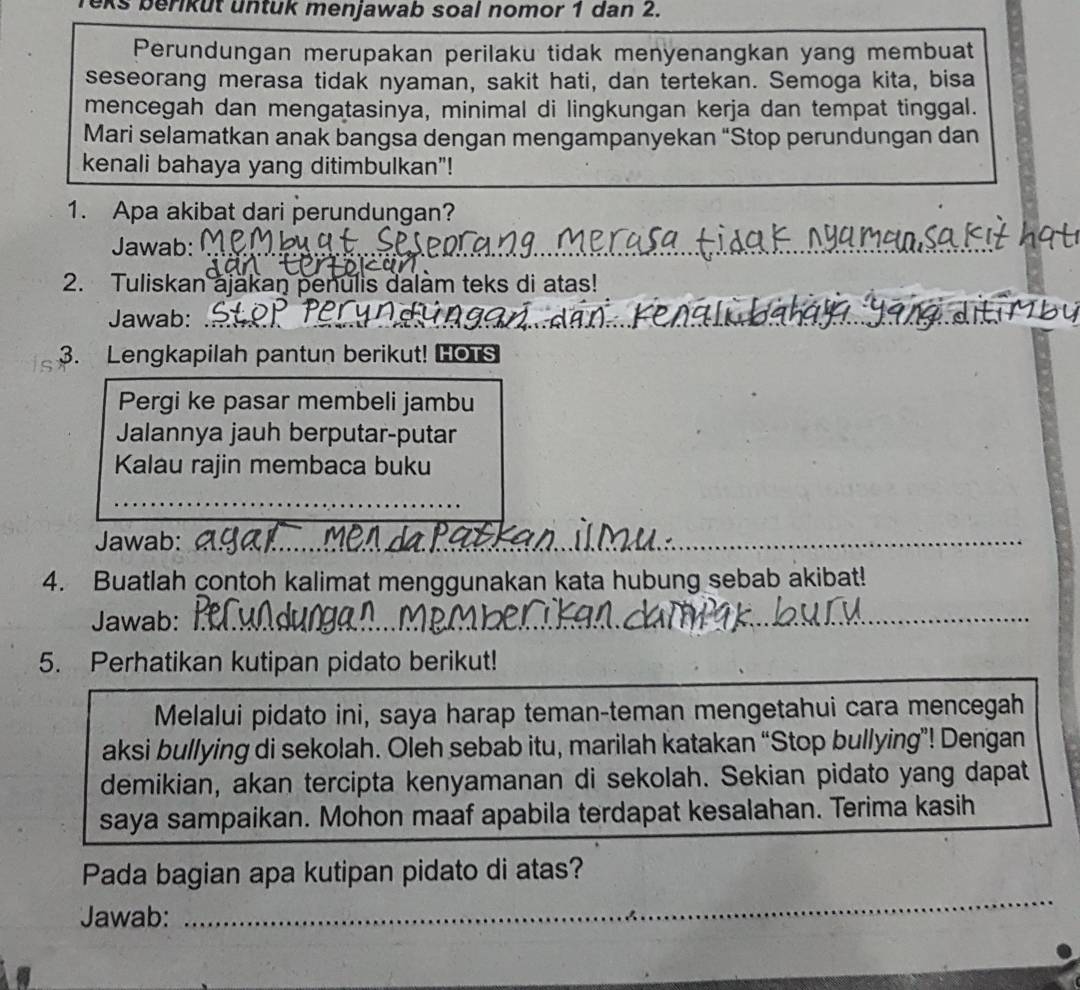 Teks berikut untuk menjawab soal nomor 1 dan 2.
Perundungan merupakan perilaku tidak menyenangkan yang membuat
seseorang merasa tidak nyaman, sakit hati, dan tertekan. Semoga kita, bisa
mencegah dan mengatasinya, minimal di lingkungan kerja dan tempat tinggal.
Mari selamatkan anak bangsa dengan mengampanyekan “Stop perundungan dan
kenali bahaya yang ditimbulkan”!
1. Apa akibat dari perundungan?
Jawab: Membuat seseorang merasa tidak nyaman, sakit hati
dan tertekan.
2. Tuliskan ajakan penulis dalam teks di atas!
Jawab: Stop Perundungan dan kenali bahaya yang ditimbu
3. Lengkapilah pantun berikut! HOTS
Pergi ke pasar membeli jambu
Jalannya jauh berputar-putar
Kalau rajin membaca buku
....................................
Jawab: agar mendapatkan ilmu.
4. Buatlah contoh kalimat menggunakan kata hubung sebab akibat!
Jawab: Perundungan memberikan dampak buru
5. Perhatikan kutipan pidato berikut!
Melalui pidato ini, saya harap teman-teman mengetahui cara mencegah
aksi bullying di sekolah. Oleh sebab itu, marilah katakan “Stop bullying”! Dengan
demikian, akan tercipta kenyamanan di sekolah. Sekian pidato yang dapat
saya sampaikan. Mohon maaf apabila terdapat kesalahan. Terima kasih
Pada bagian apa kutipan pidato di atas?
Jawab: ....................................